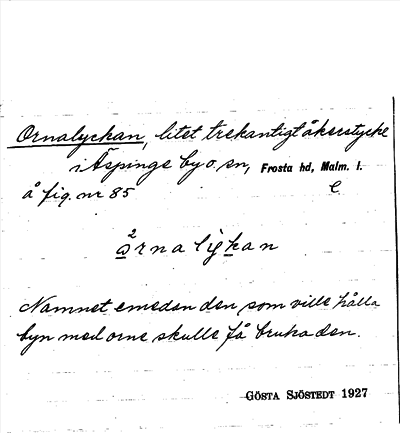 Ornalyckan, litet trekantigt åkerstycke
i Äspinge by o. sn, Frosta hd, Malm. l.
å fig. nr 85 C
2
årnaligkan
Namnet emedan den som ville hålla
byn med orne skulle få bruka den.
GÖSTA SJÖSTEDT 1927